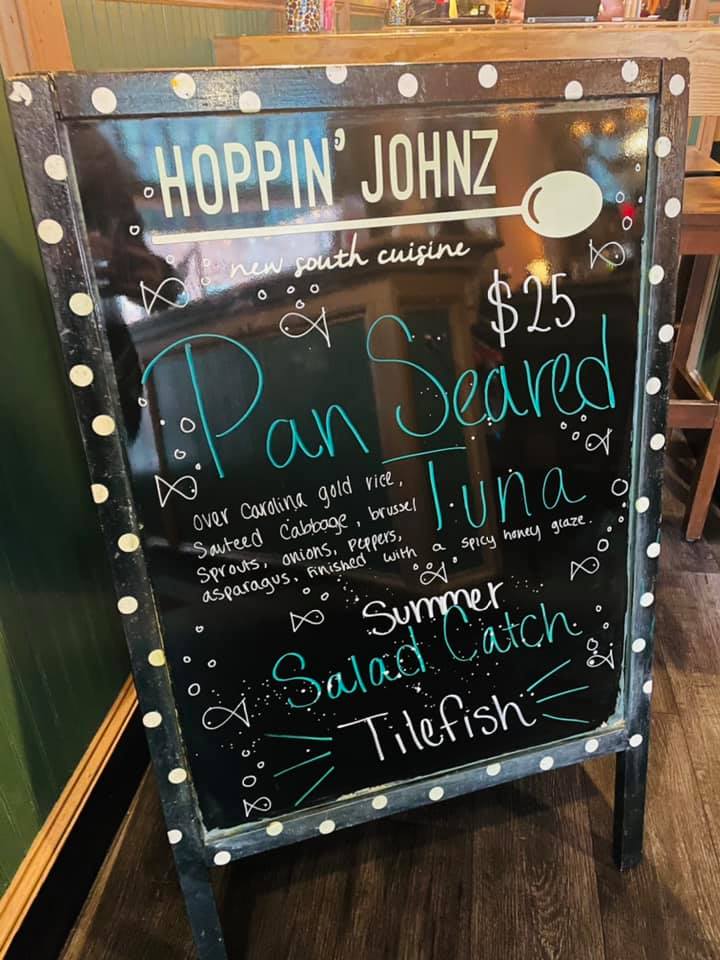 HOPPIN' JOHNZ
new south cuisine
$25
Pan Seared
Tuna
over Carolina gold rice,
Sauteed Cabbage, brussel
Sprouts, onions, Peppers,
asparagus, Finished with a spicy honey glaze.
Summer
Salad Catch
Tilefish